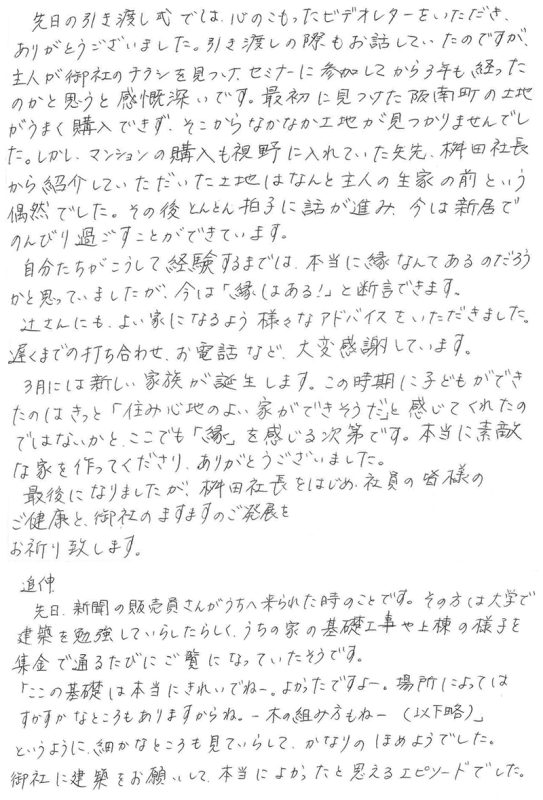 先日の引き渡し式では、心のこもったビデオレターをいただき、
ありがとうございました。引き渡しの際もお話していたのですが、
主人が御社のチラシを見つけ、セミナーに参加してから3年も経った
のかと思うと感慨深いです。最初に見つけた阪南町の土地
がうまく購入できず、そこからなかなか土地が見つかりませんでし
た。しかし、マンションの購入も視野に入れていた矢先、桝田社長
から紹介していただいた土地はなんと主人の生家の前という
偶然でした。その後とんとん拍子に話が進み、今は新居で
のんびり過ごすことができています。
自分たちがこうして経験するまでは、本当に縁なんてあるのだろう
かと思っていましたが、今は「縁はある!」と断言できます。
辻さんにも、よい家になるよう様々なアドバイスをいただきました。
遅くまでの打ち合わせ、お電話など、大変感謝しています。
3月には新しい家族が誕生します。この時期に子どもができ
たのはきっと「住み心地のよい家ができそうだ」と感じてくれたの
ではないかと、ここでも「縁」を感じる次第です。本当に素敵
な家を作ってくださり、ありがとうございました。
最後になりましたが、桝田社長をはじめ、社員の皆様の
ご健康と、御社のますますのご発展を
お祈り致します。
追伸
先日、新聞の販売員さんがうちへ来られた時のことです。その方は大学で
建築を勉強していらしたらしく、うちの家の基礎工事や上棟の様子を
集金で通るたびにご覧になっていたそうです。
「ここの基礎は本当にきれいでねー。よかったですよー。場所によっては
すかすかなところもありますからね。木の組み方もねー(以下略)」
というように、細かなところも見ていらして、かなりのほめようでした。
御社に建築をお願いして、本当によかったと思えるエピソードでした。